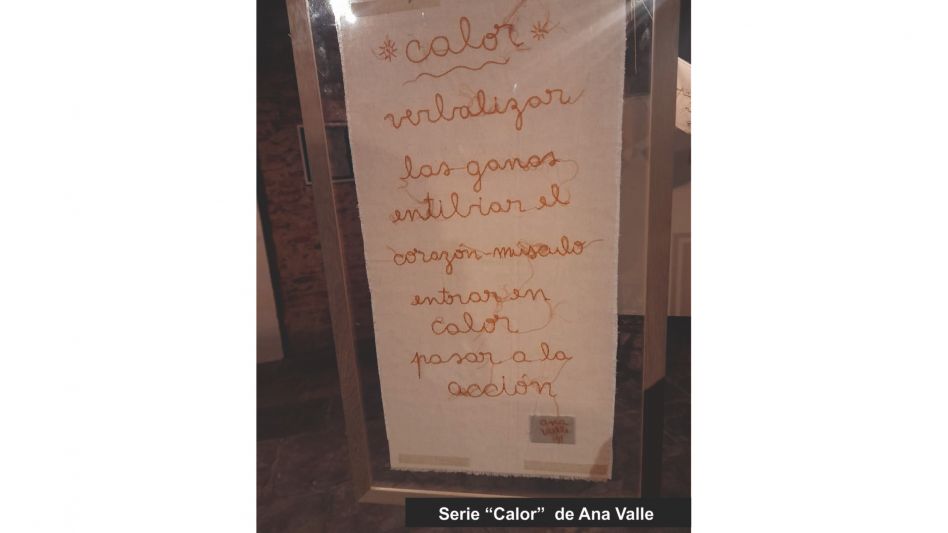 *calor*
verbalizar
las ganas
entibiar el
corazón-musculo
entrar en
calor
pasar a la
acción
ana
valle
Serie “Calor” de Ana Valle